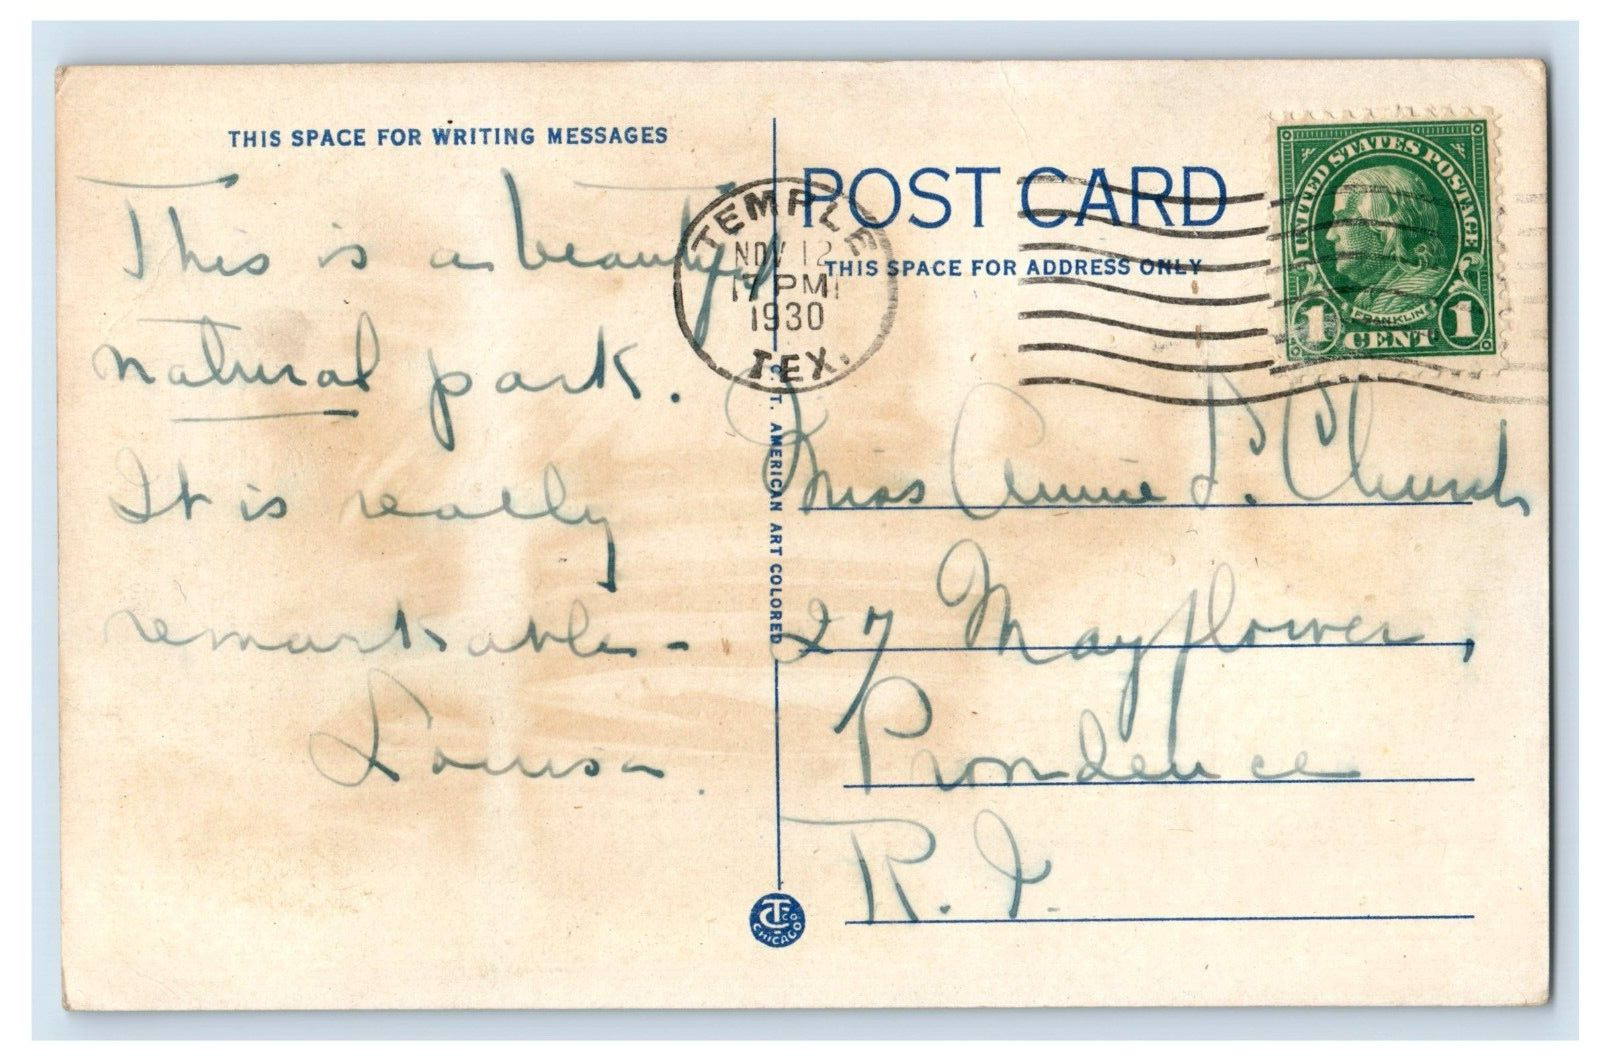 THIS SPACE FOR WRITING MESSAGES
This is a beautiful
natural park.
It is really
remarkable -
Louisa.
TEMPLE
NOV 12
7 PM
1930
TEX.
POST CARD
THIS SPACE FOR ADDRESS ONLY
UNITED STATES POSTAGE
FRANKLIN
1 CENT 1
C. T. AMERICAN ART COLORED
Miss Annie L. Church
27 Mayflower,
Providence
R. I.
CT CO
CHICAGO